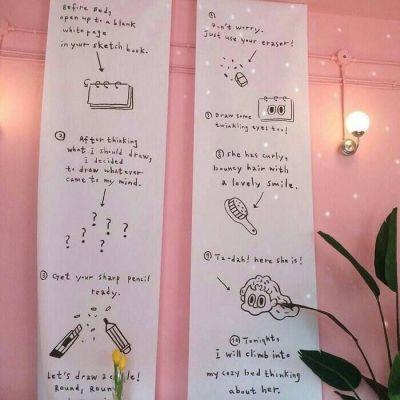 Before Bed,
open up to a blank
white page
in your sketch book.
②
After thinking
what I should draw,
i decided
to draw whatever
came to my mind.
? ? ? ? ? ?
③ Get your sharp pencil
ready.
Let's draw a
Round,
Don't worry.
Just use your eraser!
Draw some
twinkling eyes too!
⑧ she has curly,
bouncy hair with
a lovely smile.
⑨ Ta-dah! here she is!
⑩ Tonight,
I will climb into
my cozy bed thinking
about her.